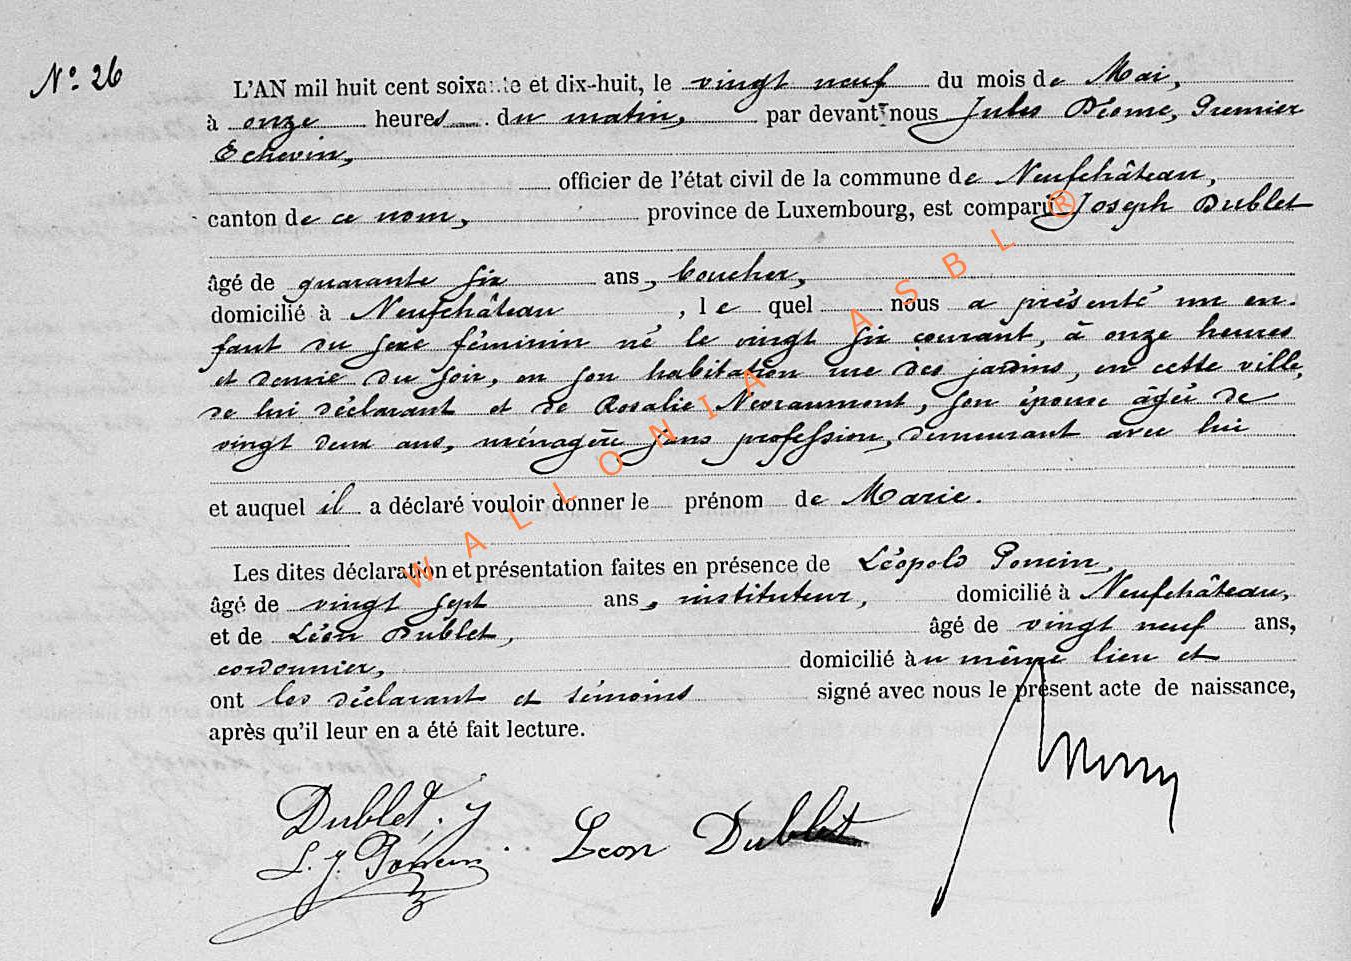 N° 26
L'AN mil huit cent soixante et dix-huit, le vingt neuf du mois de Mai,
à onze heures du matin, par devant nous Jules Diome, Premier
Echevin,
officier de l'état civil de la commune de Neufchâteau,
canton de ce nom, province de Luxembourg, est comparu Joseph Dublet
âgé de quarante six ans, boucher,
domicilié à Neufchâteau, lequel nous a présenté un en-
fant du sexe féminin né le vingt six courant, à onze heures
et demie du soir, en son habitation rue des jardins, en cette ville,
de lui déclarant et de Rosalie Nevraumont, son épouse âgée de
vingt deux ans, ménagère sans profession, demeurant avec lui
et auquel il a déclaré vouloir donner le prénom de Marie.
Les dites déclaration et présentation faites en présence de Léopold Poncin,
âgé de vingt sept ans, instituteur, domicilié à Neufchâteau,
et de Léon Dublet, âgé de vingt neuf ans,
cordonnier, domicilié au même lieu et
ont les déclarant et témoins signé avec nous le présent acte de naissance,
après qu'il leur en a été fait lecture.
Dublet. J
L. J. Poncin. Leon Dublet
WALLONIA ASBL ®